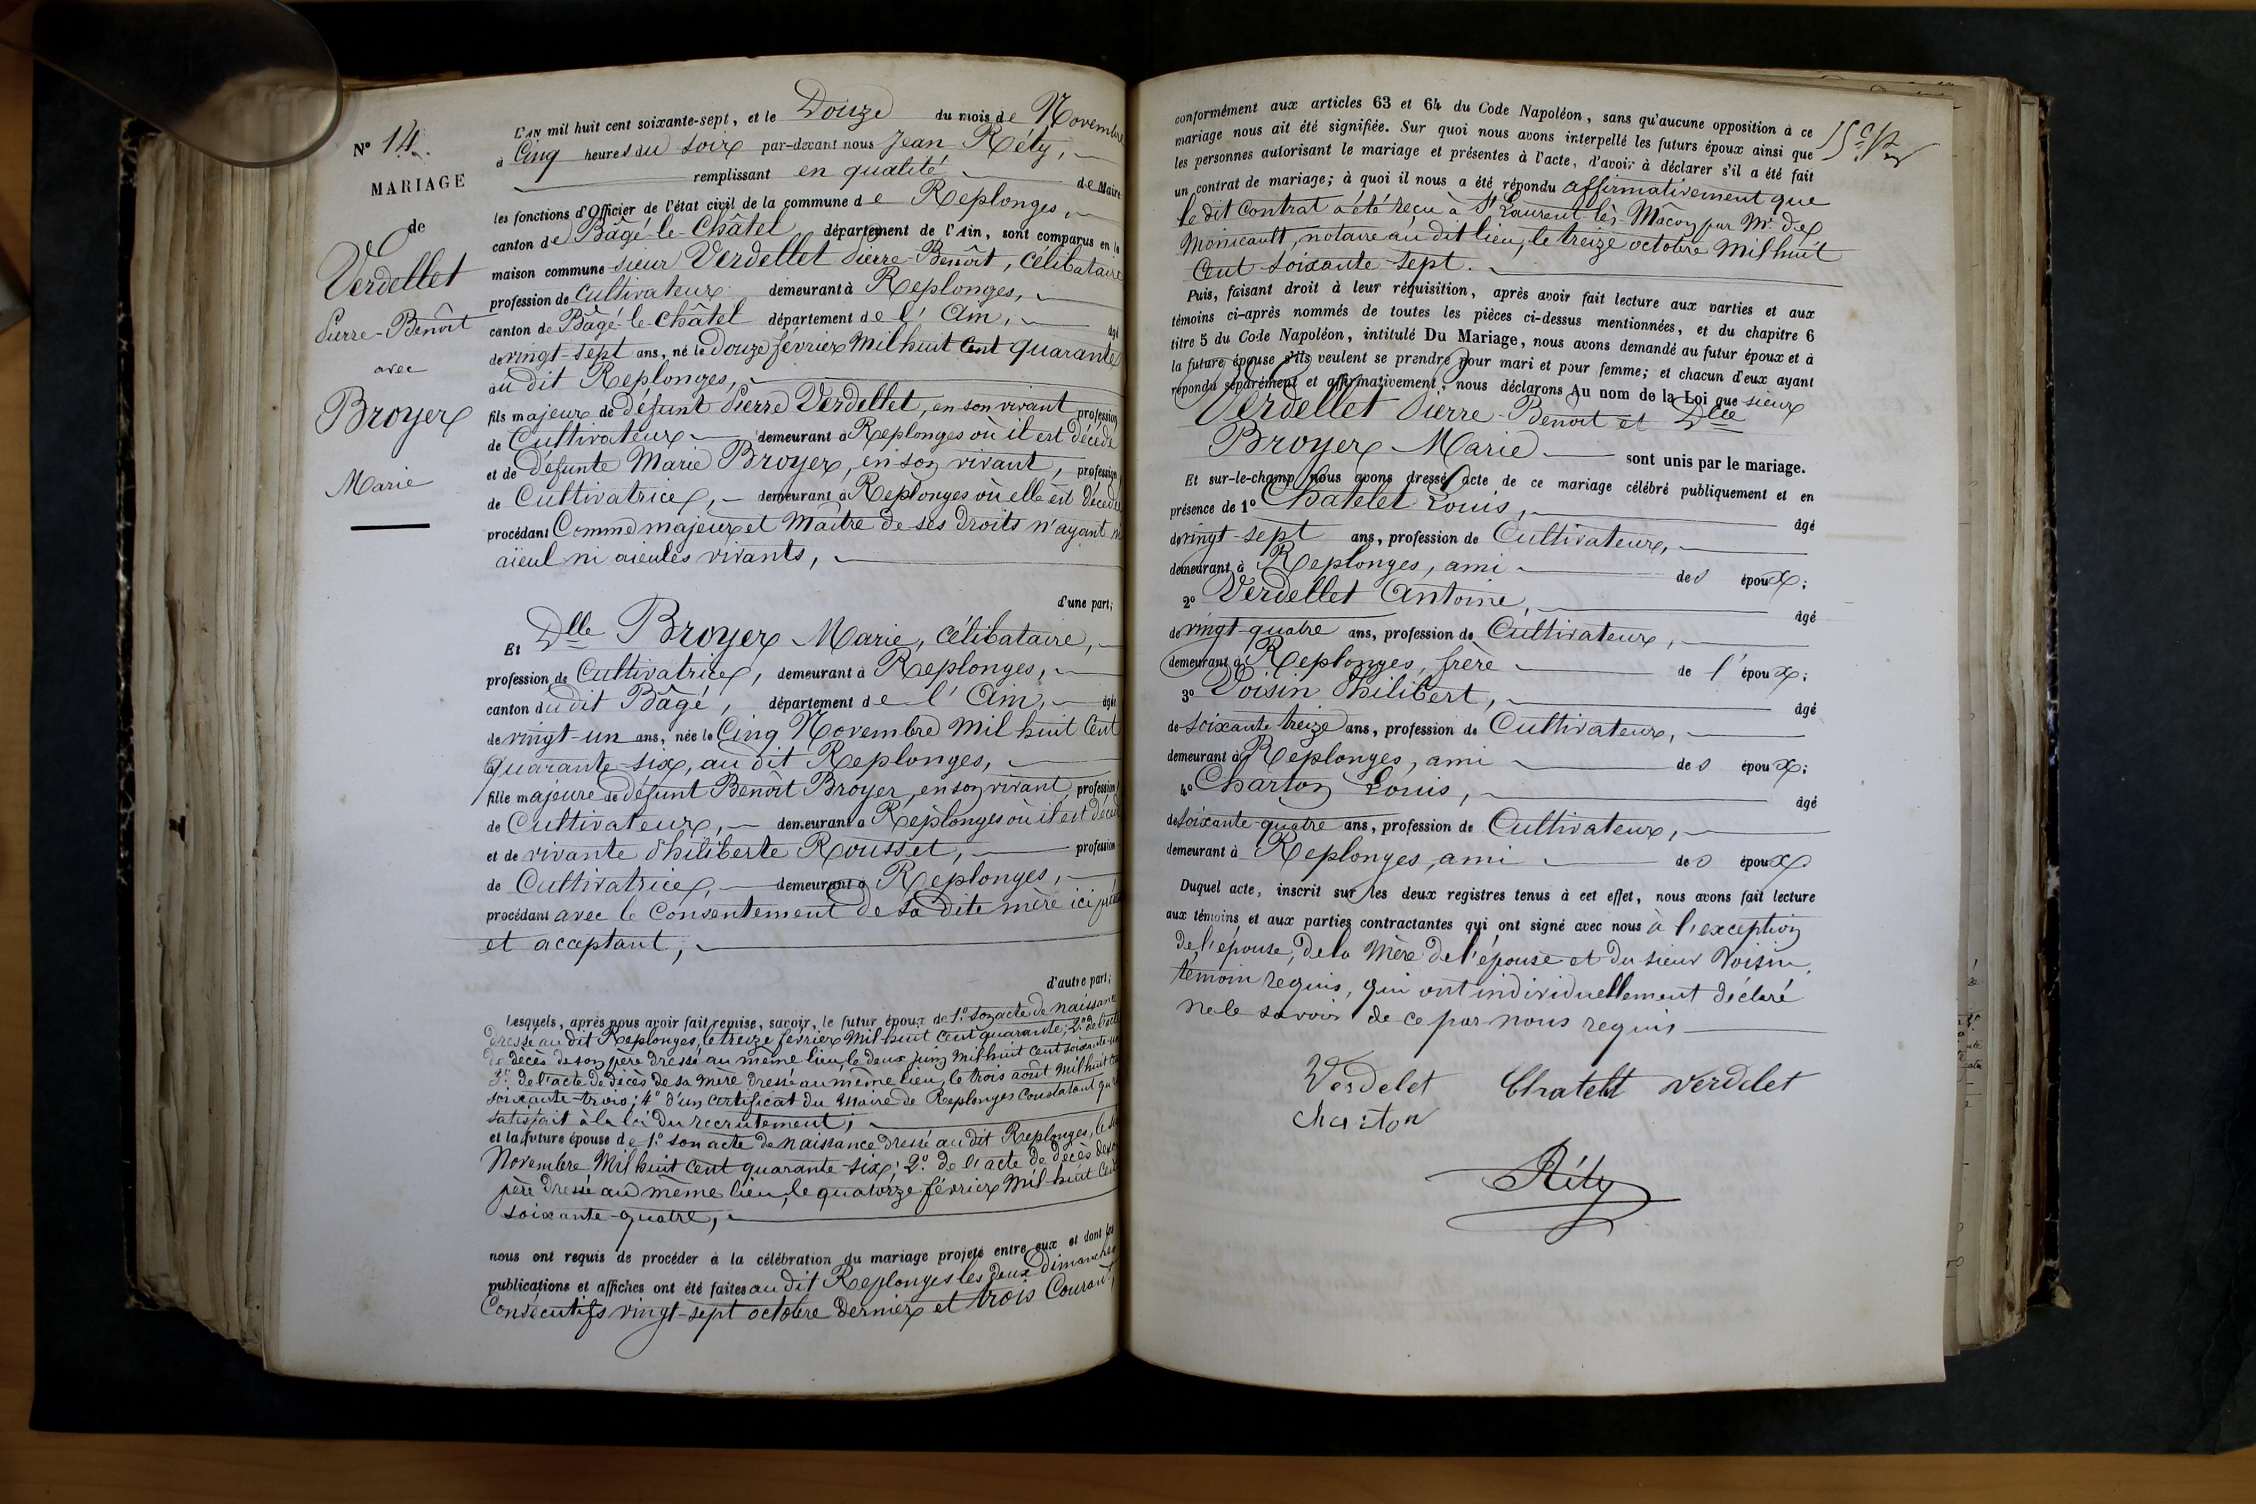 N° 14.
MARIAGE
de
Verdellet
Pierre-Benoit
avec
Broyer
Marie
L'AN mil huit cent soixante-sept, et le Douze du mois de Novembre
à Cinq heures du soir par-devant nous Jean Réty,
remplissant en qualité de Maire
les fonctions d'Officier de l'état civil de la commune de Replonges,
canton de Bâgé-le-Châtel département de l'Ain, sont comparus en la
maison commune sieur Verdellet Pierre-Benoît, célibataire
profession de cultivateur demeurant à Replonges,
canton de Bâgé-le-châtel département de l'Ain, âgé
de vingt-sept ans, né le douze février Mil huit Cent quarante
au dit Replonges,
fils majeur de défunt Pierre Verdellet, en son vivant profession
de Cultivateur demeurant à Replonges où il est décédé
et de défunte Marie Broyer, en son vivant, profession
de Cultivatrice, demeurant à Replonges où elle est décédée
procédant Comme majeur et Maître de ses droits n'ayant ni
aïeul ni aïeules vivants,
d'une part;
Et Dlle Broyer Marie, célibataire,
profession de Cultivatrice, demeurant à Replonges,
canton du dit Bâgé, département de l'Ain, âgée
de vingt-un ans, née le Cinq Novembre Mil huit Cent
quarante-six, au dit Replonges,
fille majeure de défunt Benoît Broyer, en son vivant profession
de Cultivateur, demeurant à Replonges où il est décédé
et de vivante Philiberte Rousset, profession
de Cultivatrice, demeurant à Replonges,
procédant avec le Consentement de sa dite mère ici présente
et acceptant,
d'autre part;
Lesquels, après nous avoir fait remise, savoir, le futur époux de 1° son acte de naissance
dressé au dit Replonges, le treize février Mil huit Cent quarante; 2° de l'acte
de décès de son père dressé au même lieu, le deux juin Mil huit Cent soixante-un
3° de l'acte de décès de sa mère dressé au même lieu, le trois août Mil huit Cent
soixante-trois; 4° d'un certificat du Maire de Replonges Constatant qu'il
satisfait à la loi du recrutement;
et la future épouse de 1° son acte de naissance dressé au dit Replonges, le six
Novembre Mil huit Cent quarante-six; 2° de l'acte de décès de son
père dressé au même lieu, le quatorze février Mil huit Cent
soixante-quatre,
nous ont requis de procéder à la célébration du mariage projeté entre eux et dont les
publications et affiches ont été faites au dit Replonges les deux dimanches
Consécutifs vingt-sept octobre dernier et trois Courant,
conformément aux articles 63 et 64 du Code Napoléon, sans qu'aucune opposition à ce
mariage nous ait été signifiée. Sur quoi nous avons interpellé les futurs époux ainsi que
les personnes autorisant le mariage et présentes à l'acte, d'avoir à déclarer s'il a été fait
un contrat de mariage; à quoi il nous a été répondu affirmativement que
le dit Contrat a été reçu à St Laurent-lès-Mâcon par Me de
Monicault, notaire au dit lieu, le treize octobre Mil huit
Cent soixante-sept.
Puis, faisant droit à leur réquisition, après avoir fait lecture aux parties et aux
témoins ci-après nommés de toutes les pièces ci-dessus mentionnées, et du chapitre 6
titre 5 du Code Napoléon, intitulé Du Mariage, nous avons demandé au futur époux et à
la future épouse s'ils veulent se prendre pour mari et pour femme; et chacun d'eux ayant
répondu séparément et affirmativement, nous déclarons Au nom de la Loi que sieur
Verdellet Pierre-Benoît et Dlle
Broyer Marie sont unis par le mariage.
Et sur-le-champ nous avons dressé acte de ce mariage célébré publiquement et en
présence de 1° Chatelet Louis, âgé
de vingt-sept ans, profession de Cultivateur,
demeurant à Replonges, ami des époux;
2° Verdellet Antoine, âgé
de vingt-quatre ans, profession de Cultivateur,
demeurant à Replonges, frère de l'époux;
3° Voisin Philibert, âgé
de soixante treize ans, profession de Cultivateur,
demeurant à Replonges, ami des époux;
4° Charton Louis, âgé
de soixante-quatre ans, profession de Cultivateur,
demeurant à Replonges, ami des époux
Duquel acte, inscrit sur les deux registres tenus à cet effet, nous avons fait lecture
aux témoins et aux parties contractantes qui ont signé avec nous à l'exception
de l'épouse, de la Mère de l'épouse et du sieur Voisin,
témoin requis, qui ont individuellement déclaré
ne le savoir de ce par nous requis
Verdelet Chatelet verdelet
charton
Réty